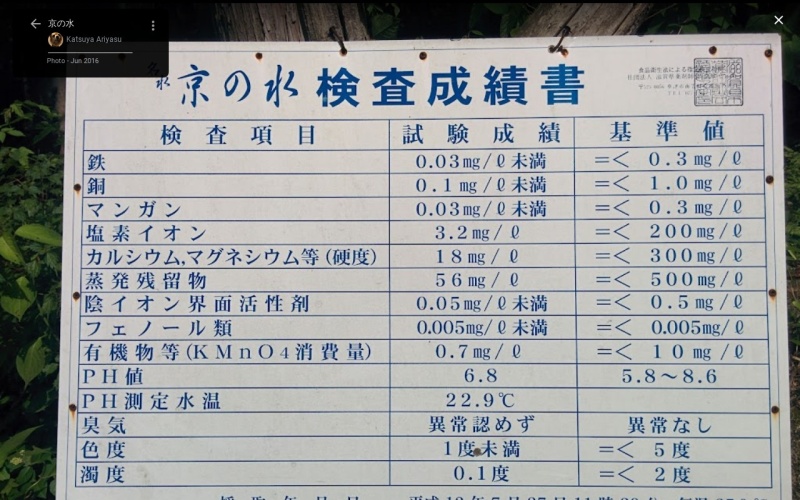 京の水
Katsuya Ariyasu
Photo - Jun 2016
京の水 検査成績書
検査項目 試験成績 基準値
鉄 0.03mg/ℓ未満 =< 0.3mg/ℓ
銅 0.1mg/ℓ未満 =< 1.0mg/ℓ
マンガン 0.03mg/ℓ未満 =< 0.3mg/ℓ
塩素イオン 3.2mg/ℓ =< 200mg/ℓ
カルシウム,マグネシウム等(硬度) 18mg/ℓ =< 300mg/ℓ
蒸発残留物 56mg/ℓ =< 500mg/ℓ
陰イオン界面活性剤 0.05mg/ℓ未満 =< 0.5mg/ℓ
フェノール類 0.005mg/ℓ未満 =< 0.005mg/ℓ
有機物等(KMnO4消費量) 0.7mg/ℓ =< 10mg/ℓ
PH値 6.8 5.8～8.6
PH測定水温 22.9℃
臭気 異常認めず 異常なし
色度 1度未満 =< 5度
濁度 0.1度 =< 2度